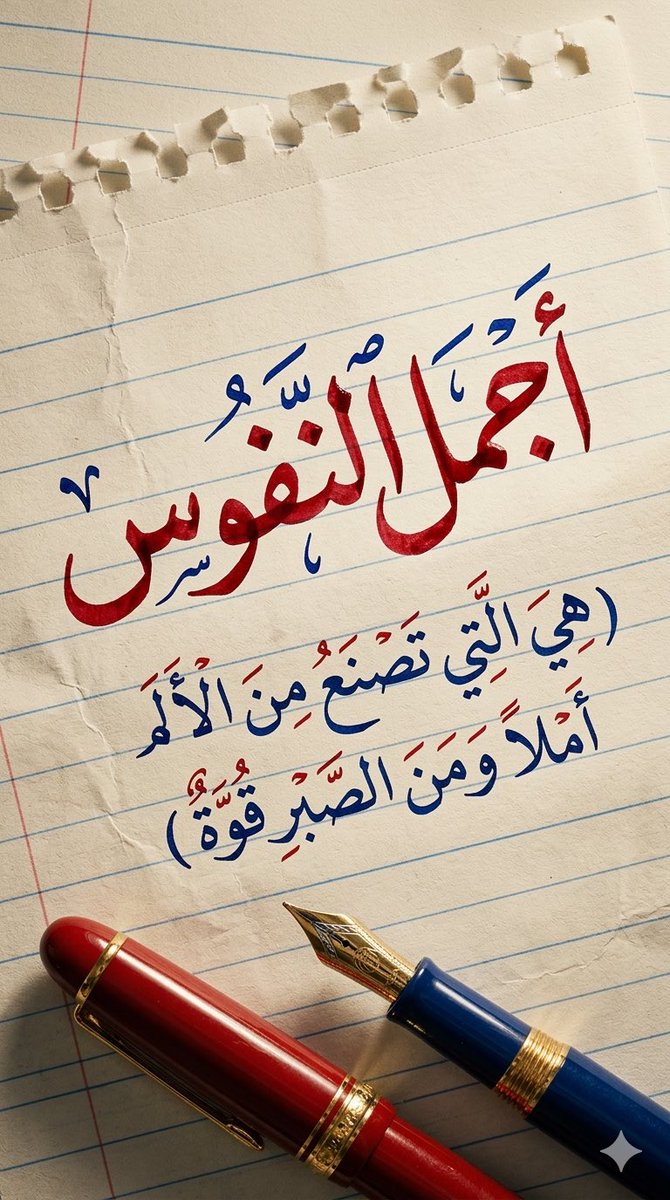 أجمل ٱلنَّفُوس
(هِيَ الَّتِي تَصْنَعُ مِنَ الْأَلَمَ
أَمْلاً وَمَنَ الصَّبْرِ قُوَّةٌ)